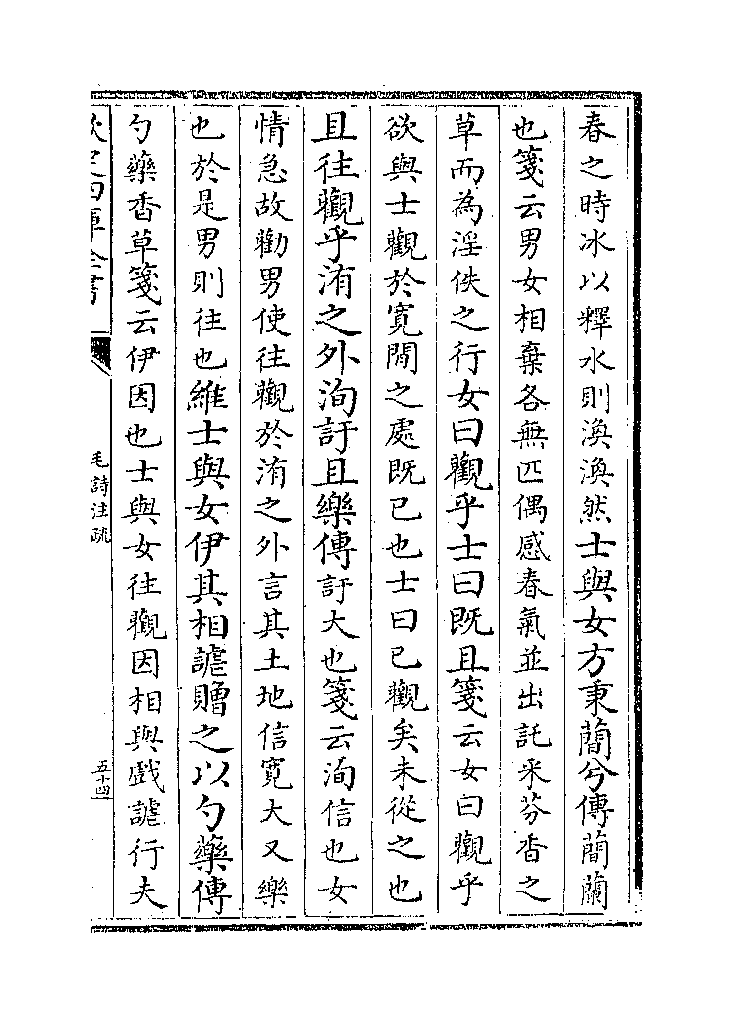 春之時冰以釋水則渙渙然士與女方秉蕑兮傳蕑蘭
也箋云男女相棄各無匹偶感春氣並出託采芬香之
草而為淫佚之行女曰觀乎士曰既且箋云女曰觀乎
欲與士觀於寛閒之處既已也士曰已觀矣未從之也
且往觀乎洧之外洵訏且樂傳訏大也箋云洵信也女
情急故勸男使往觀於洧之外言其土地信寛大又樂
也於是男則往也維士與女伊其相謔贈之以勺藥傳
勺藥香草箋云伊因也士與女往觀因相與戲謔行夫
欽定四庫全書
毛詩注疏
五十四